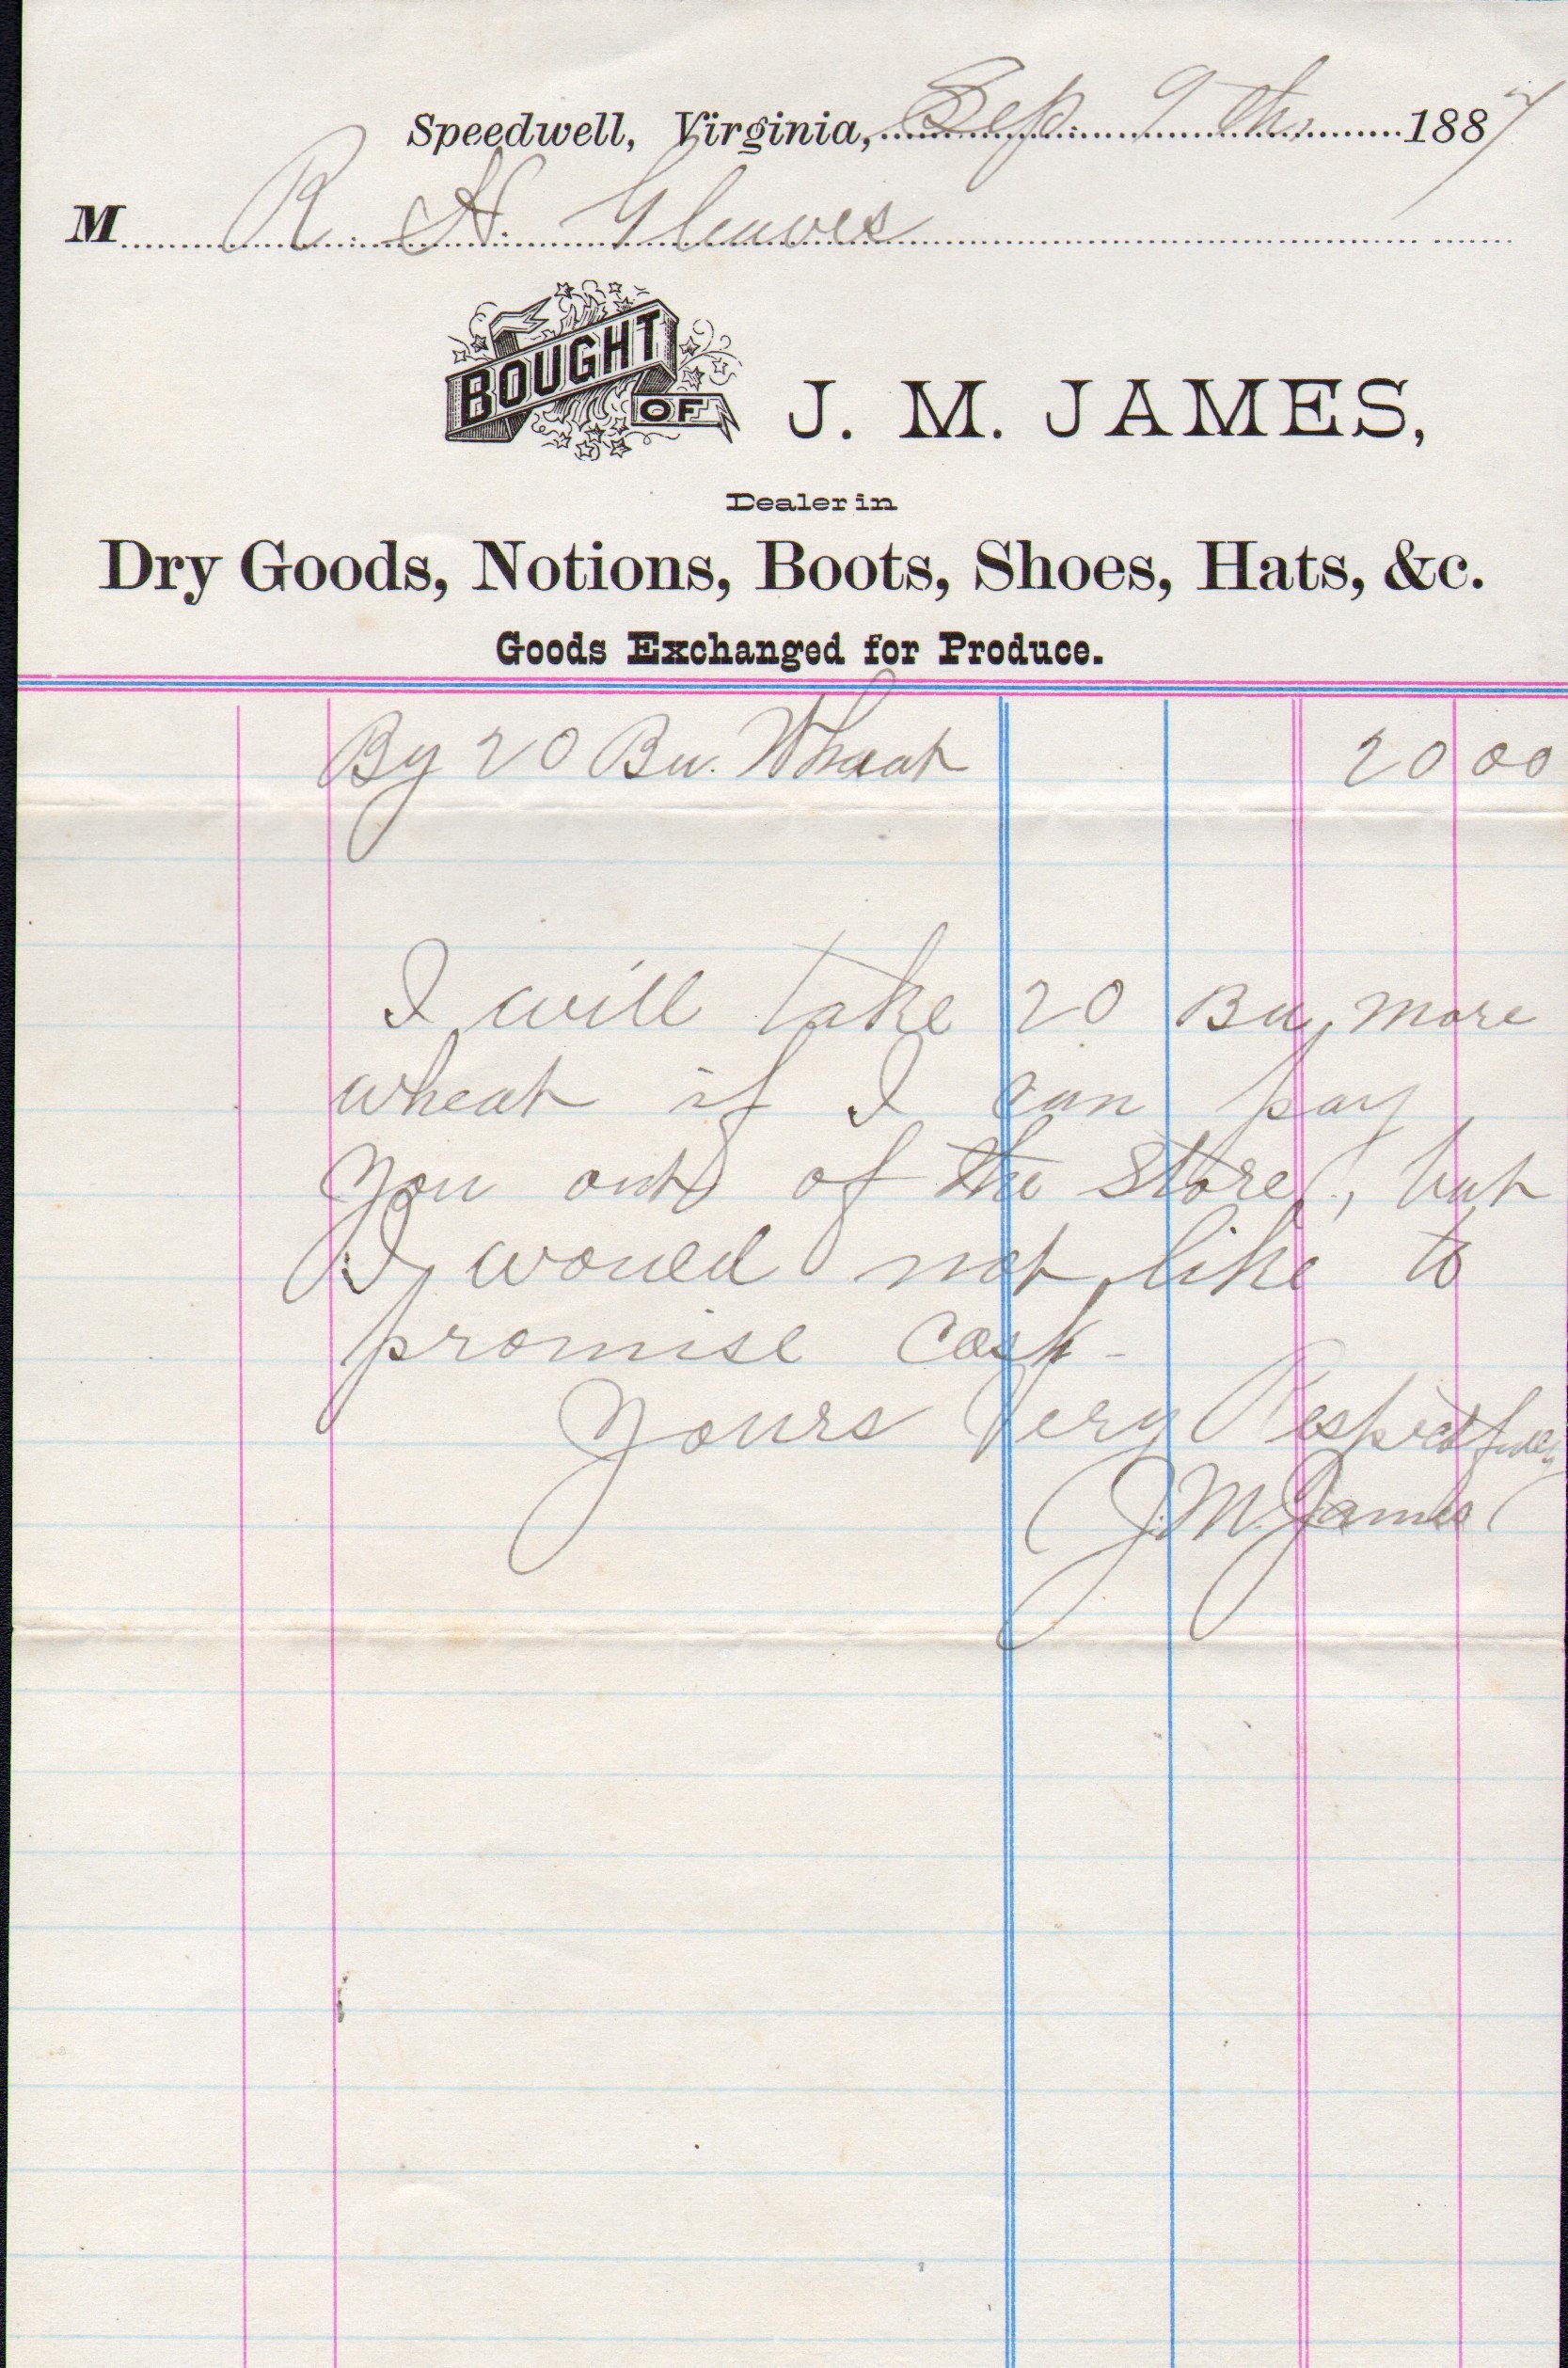 Speedwell, Virginia, Sep. 9th, 1887
M R. H. Gleaves
BOUGHT OF J. M. JAMES,
Dealer in
Dry Goods, Notions, Boots, Shoes, Hats, &c.
Goods Exchanged for Produce.
By 20 Bu. Wheat 20 00
I will take 20 Bu, more
wheat if I can pay
you out of the store, but
I would not like to
promise cash-
Yours Very Respectfully
J. M. James